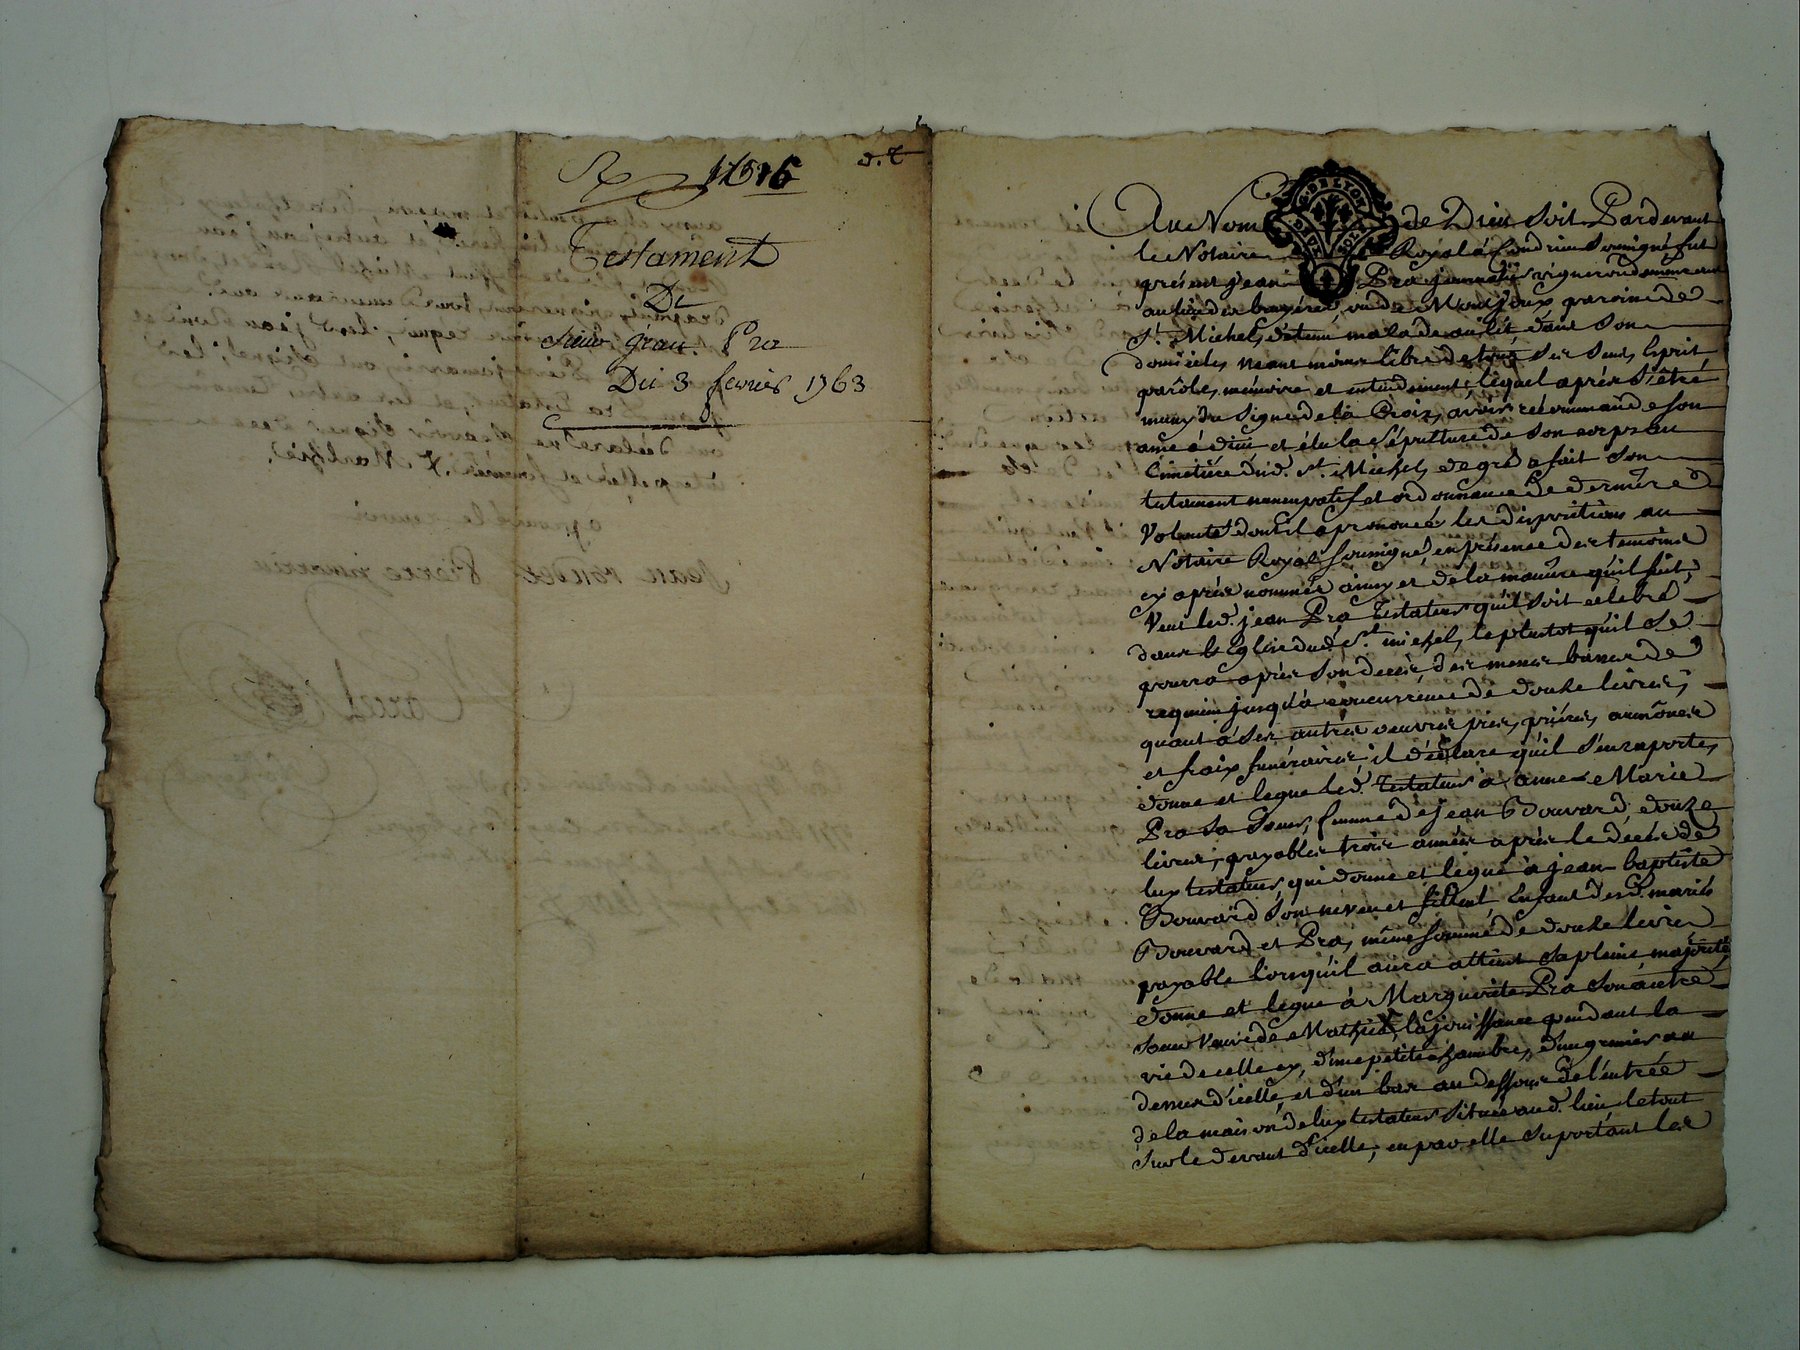 1616
d. T
Testament
De
Sieur jean Pra
Du 3 fevrier 1763
G. DE LYON
Au Nom de Dieu soit Pardevant
le Notaire Royal à Condrieu soussigné fut
présent jean Pra vigneron demeurant
au lieu des bruyeres, ou de Montjoux paroisse de
St. Michel, détenu malade au lit dans son
domicile, néant moins libre de tous ses sens, Esprit
parôle, mémoire et entendement; lequel après s'être
muny du signe de la Croix, avoir récommandé son
ame à dieu et élu la sépulture de son corps au
Cimetière dud. St. Michel, de gré a fait son
testament nuncupatif et ordonnance de derniere
Volonté dont il a prononcé les dispositions au
Notaire Royal soussigné, en présence des temoins
cy après nommés ainsy et de la manière qu'il suit.
Veut led. jean Pra testateur qu'il soit célébré
dans l'Eglise dud. St. michel, le plustot qu'il se
pourra après son decès des messes basses de
requiem jusqu'à concurrence de douze livres;
quant à ses autres oeuvres pies, prières, aumônes
et fraix funéraires il déclare qu'il s'en raporte,
donne et legue led. testateur à anne Marie
Pra sa soeur, femme de jean Bouvard, douze
livres, payables trois années après le décès de
luy testateur, qui donne et legue à jean baptiste
Bouvard son neveu et filleul, Enfant desd. mariés
Bouvard et Pra, même somme de douze livres
payable lorsqu'il aura atteint sa pleine majorité,
donne et legue à Marguerite Pra son autre
soeur Veuve de Mathieu, la jouissance pendant la
vie de celle cy, d'une petite chambre, d'un grenier au
dessus d'icelle, et d'un bas au dessous de l'entrée
de la maison de luy testateur située aud. lieu le tout
sur le devant d'icelle, en par elle suportant les